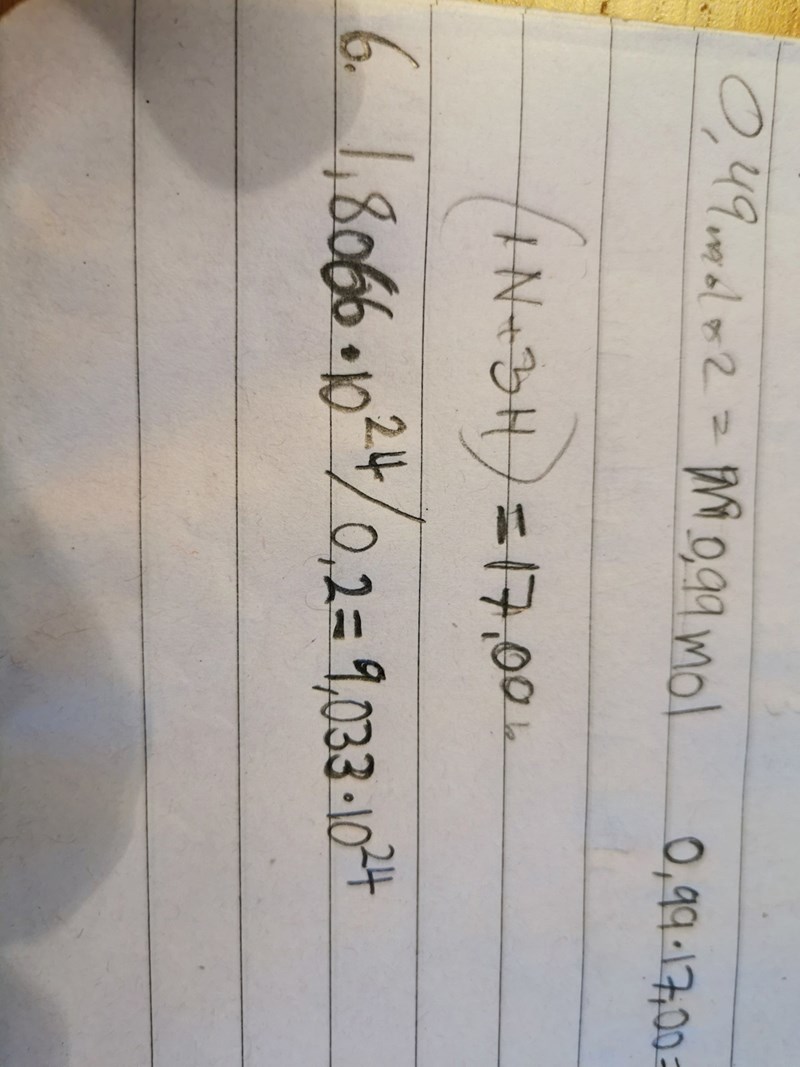 0,49 mol · 2 = 0,99 mol 0,99 · 17,00=
(1N+3H) = 17,00
6. 1,8066 · 10²⁴ / 0,2 = 9,033 · 10²⁴